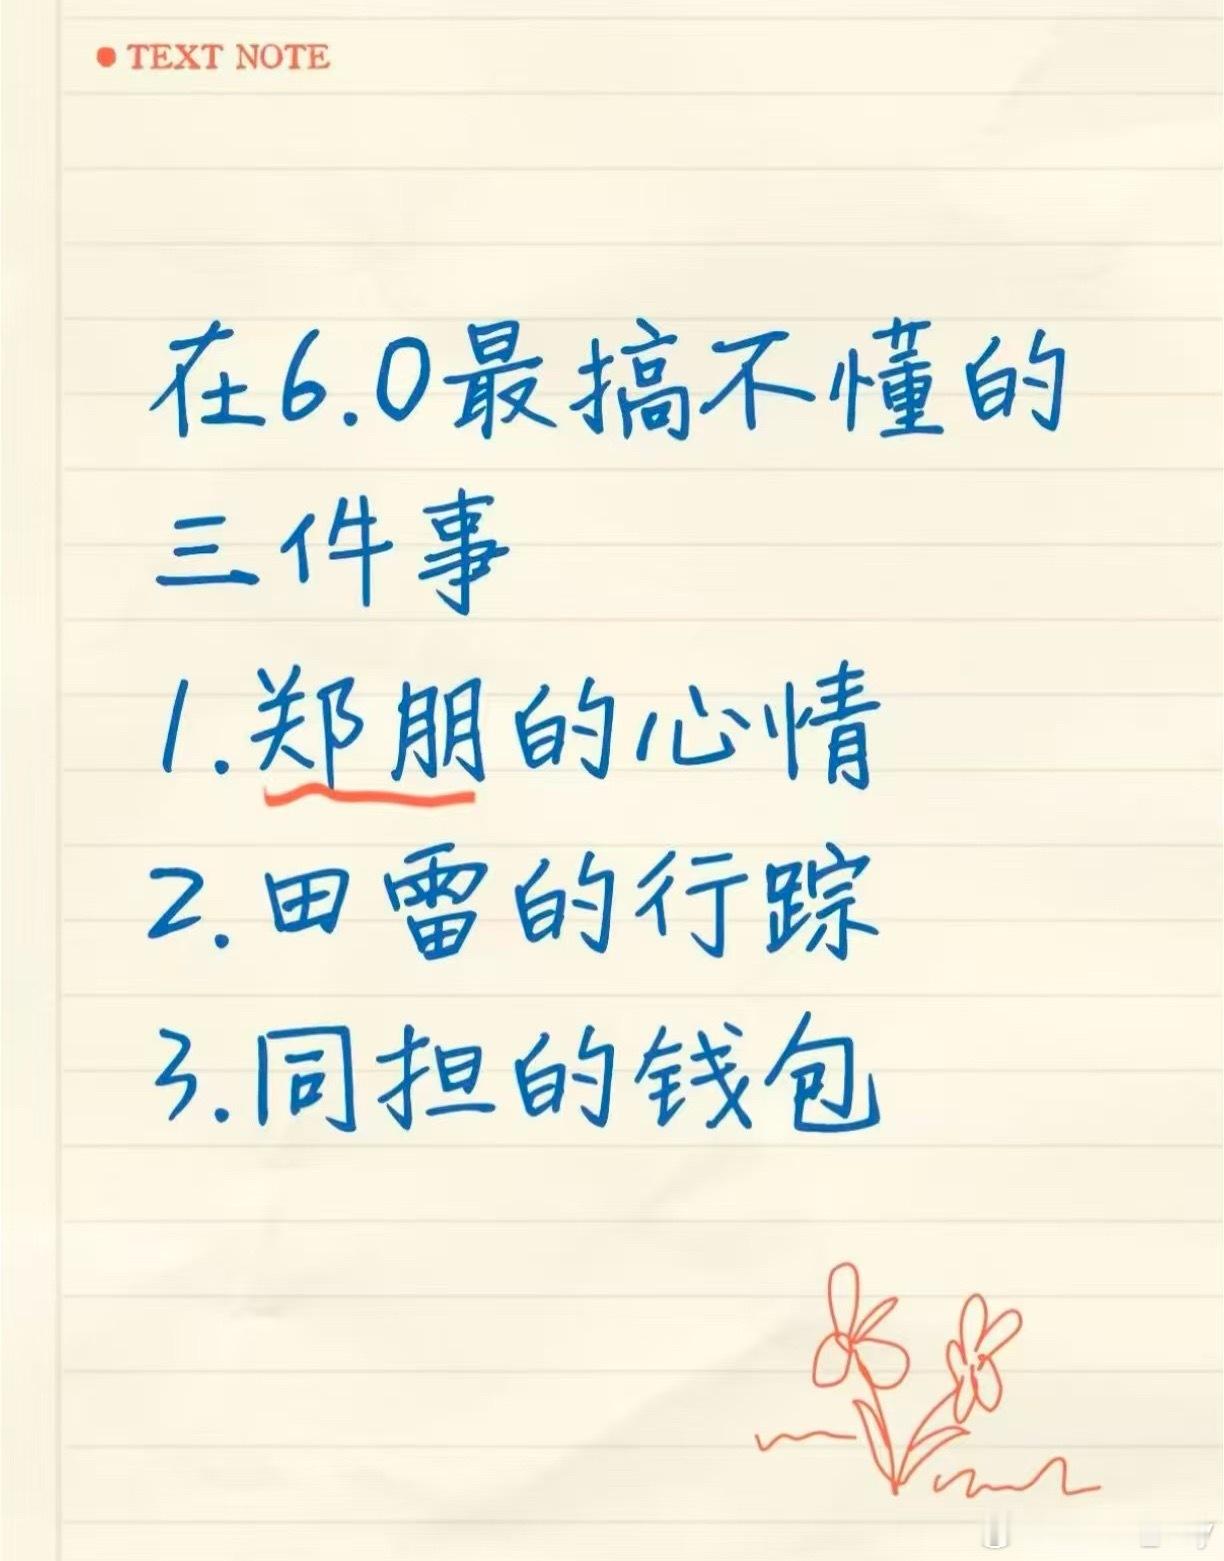 TEXT NOTE
在6.0最搞不懂的
三件事
1.郑朋的心情
2.田雷的行踪
3.同担的钱包